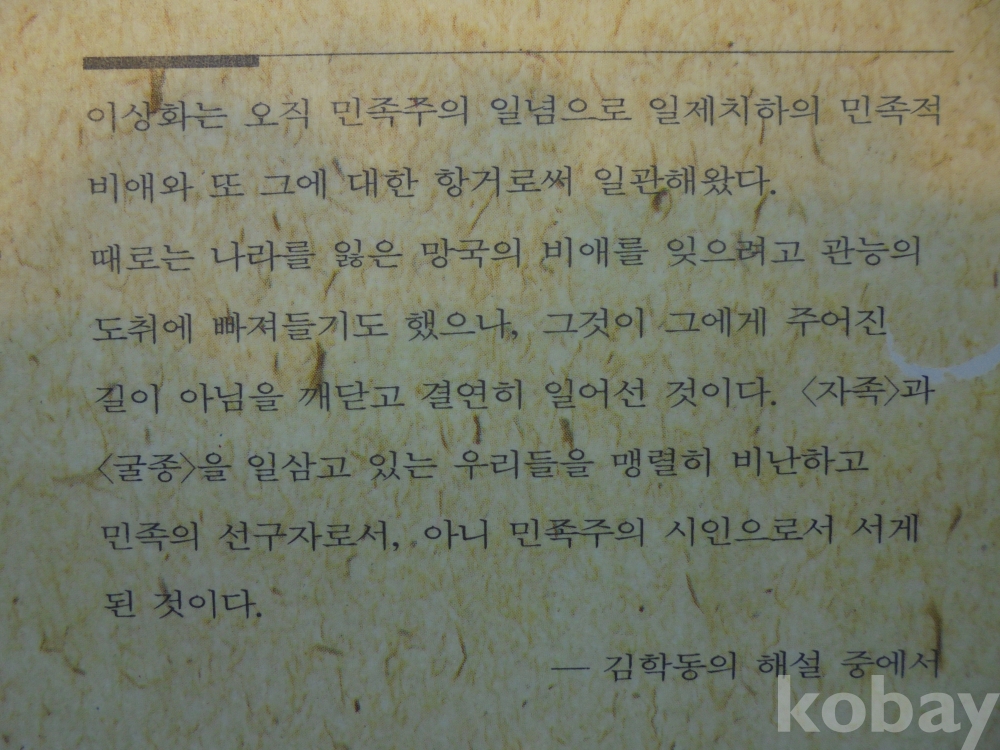 이상화는 오직 민족주의 일념으로 일제치하의 민족적
비애와 또 그에 대한 항거로써 일관해왔다.
때로는 나라를 잃은 망국의 비애를 잊으려고 관능의
도취에 빠져들기도 했으나, 그것이 그에게 주어진
길이 아님을 깨닫고 결연히 일어선 것이다. 〈자족〉과
〈굴종〉을 일삼고 있는 우리들을 맹렬히 비난하고
민족의 선구자로서, 아니 민족주의 시인으로서 서게
된 것이다.
— 김학동의 해설 중에서
kobay